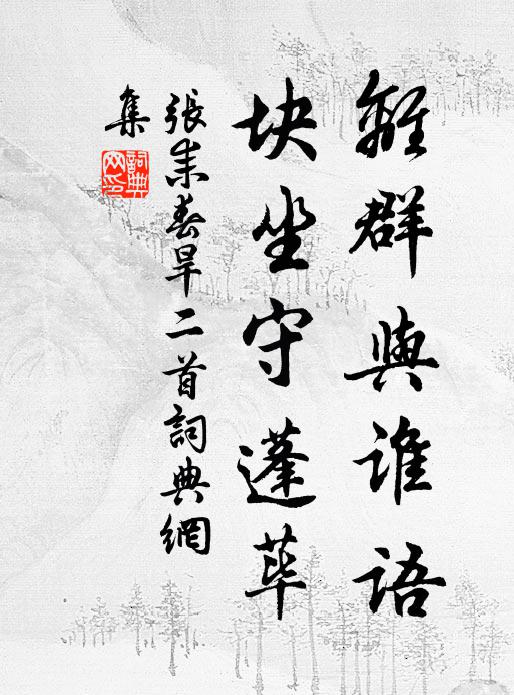 離群與谁语
块坐守蓬荜
張耒春旱二首詞典網
集
詞典
网印